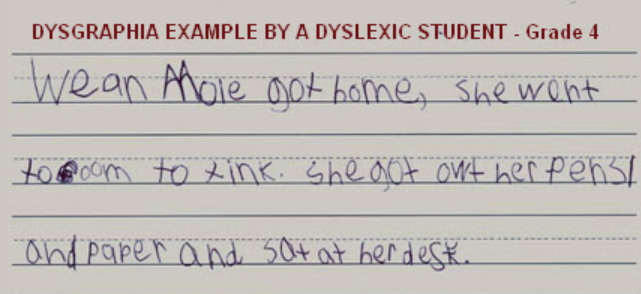 DYSGRAPHIA EXAMPLE BY A DYSLEXIC STUDENT - Grade 4
Wean Moie got home, she went
to room to xink. she got out her pensl
and paper and sat at her desk.